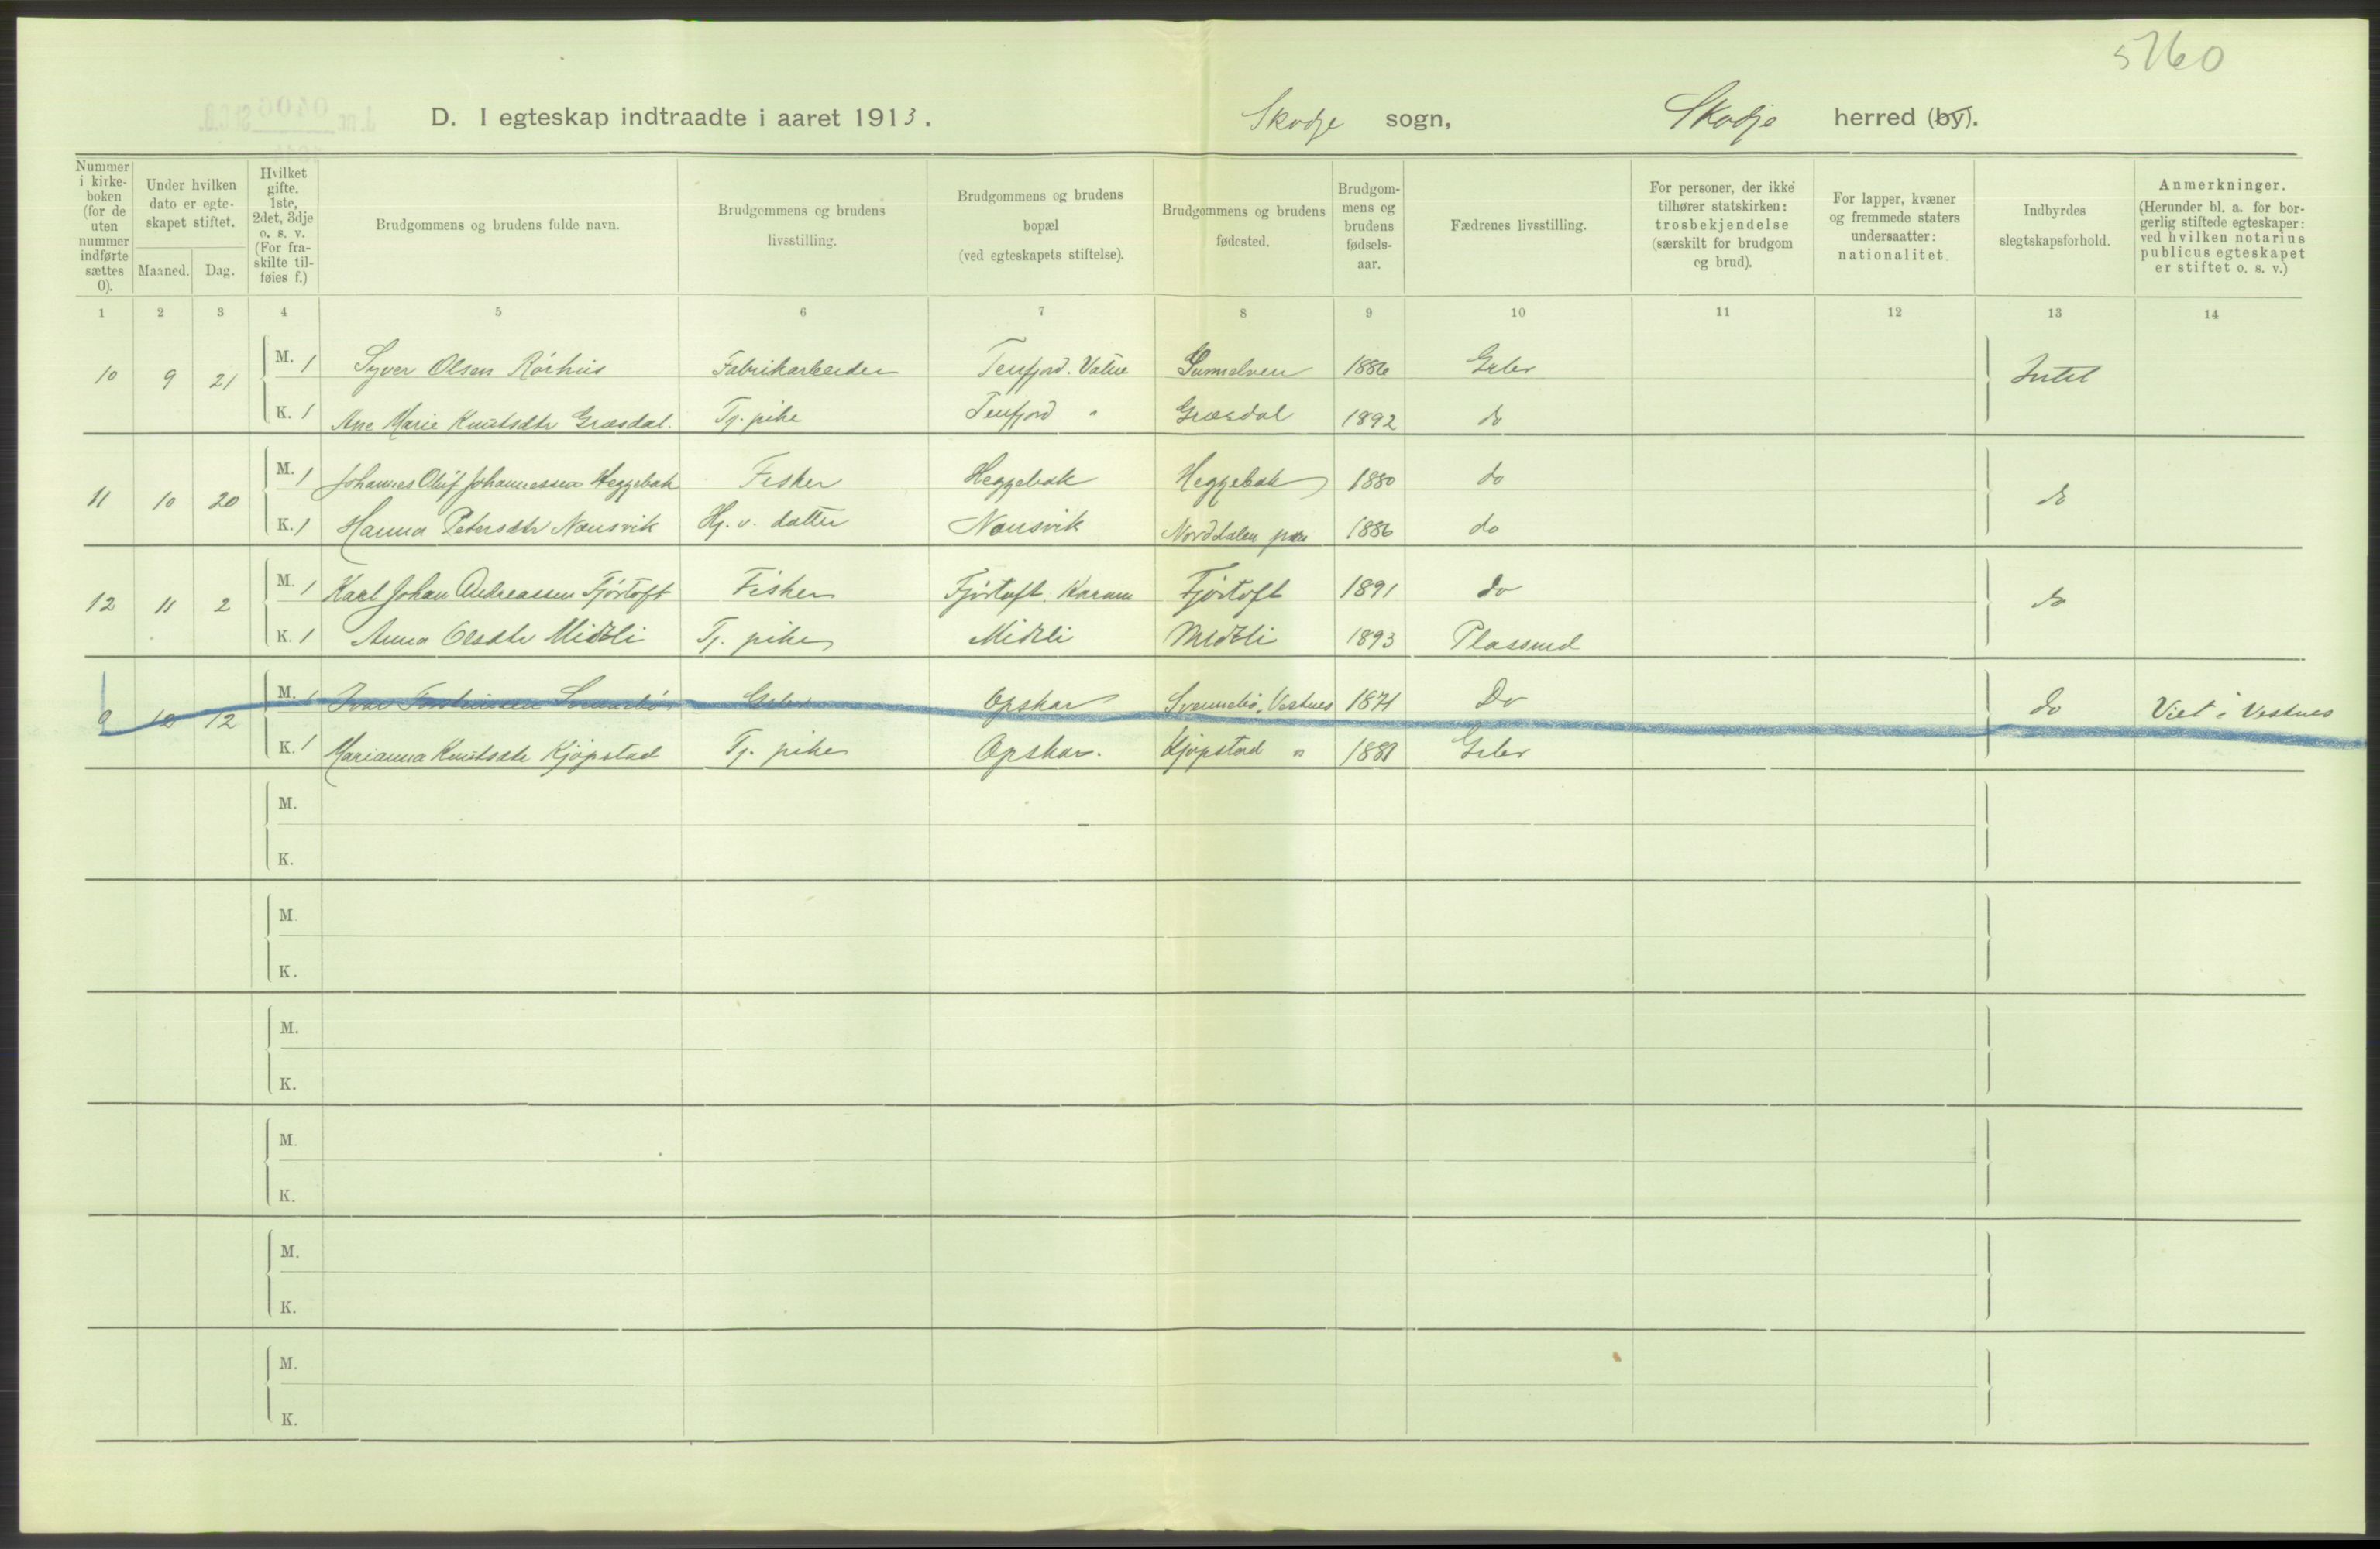 5760
D. I egteskap indtraadte i aaret 1913. Skodje sogn, Skodje herred (by).
Nummer i kirkeboken (for de uten nummer indførte sættes 0).
Under hvilken dato er egteskapet stiftet.
Maaned. Dag.
Hvilket gifte. 1ste, 2det, 3dje o. s. v. (For fraskilte tilføies f.)
Brudgommens og brudens fulde navn.
Brudgommens og brudens livsstilling.
Brudgommens og brudens bopæl (ved egteskapets stiftelse).
Brudgommens og brudens fødested.
Brudgommens og brudens fødselsaar.
Fædrenes livsstilling.
For personer, der ikke tilhører statskirken: trosbekjendelse (særskilt for brudgom og brud).
For lapper, kvæner og fremmede staters undersaatter: nationalitet.
Indbyrdes slegtskapsforhold.
Anmerkninger. (Herunder bl. a. for borgerlig stiftede egteskaper: ved hvilken notarius publicus egteskapet er stiftet o. s. v.)
1 2 3 4 5 6 7 8 9 10 11 12 13 14
10 9 21 M. 1 Syver Olsen Rørhus Fabrikarbeider Tenfjord. Vatne Sunnelven 1886 Gbr Intet
K. 1 Ane Marie Knutsdtr Græsdal. Tj. pike Tenfjord " Græsdal 1892 do
11 10 20 M. 1 Johannes Oluf Johannessen Heggebak Fisker Heggebak Heggebak 1880 do do
K. 1 Hanna Petersdtr Nausvik Hj. v. datter Nausvik Norddalen 1886 do
12 11 2 M. 1 Karl Johan Andreassen Fjørtoft Fisker Fjørtoft. Haram Fjørtoft 1891 do do
K. 1 Anna Olsdtr Midtli Tj. pike Midtli Midtli 1893 Plassmd
9 10 12 M. 1 Ivar Opskar Svennebø, Vestnes 1871 Do do Viet i Vestnes
K. 1 Marianna Knutsdtr Kjøpstad Tj. pike Opskar. Kjøpstad " 1881 Gbr
M.
K.
M.
K.
M.
K.
M.
K.
M.
K.
M.
K.